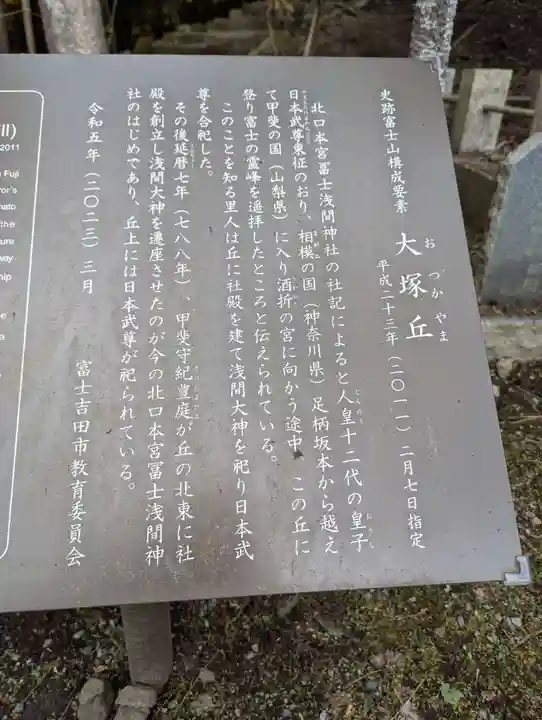 史跡富士山構成要素
大塚丘
おつかやま
平成二十三年(二〇一一)二月七日指定
北口本宮冨士浅間神社の社記によると人皇十二代の皇子
日本武尊東征のおり、相模の国(神奈川県)足柄坂本から越え
て甲斐の国(山梨県)に入り酒折の宮に向かう途中、この丘に
登り富士の霊峰を遥拝したところと伝えられている。
このことを知る里人は丘に社殿を建て浅間大神を祀り日本武
尊を合祀した。
その後延暦七年(七八八年)、甲斐守紀豊庭が丘の北東に社
殿を創立し浅間大神を遷座させたのが今の北口本宮冨士浅間神
社のはじめであり、丘上には日本武尊が祀られている。
令和五年(二〇二三)三月
富士吉田市教育委員会
2011
Fuji